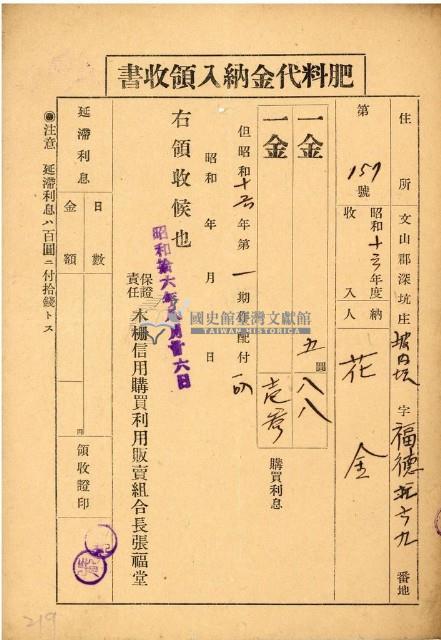 肥料代金納入領收書
住所 文山郡深坑庄坡內坑字福德坑六九番地
第157號 昭和十六年度納
收入人 花 金
一金 五圓八八
一金 壱
購買利息
但昭和十六年第一期作配付
右領收候也
昭和 年 月 日
昭和拾六年 月廿六日
保證責任木柵信用購買利用販賣組合長張福堂
延滯利息
日數
金額
円
領收證印
注意 延滯利息ハ百圓ニ付拾錢トス
國史館臺灣文獻館
TAIWAN HISTORICA
219